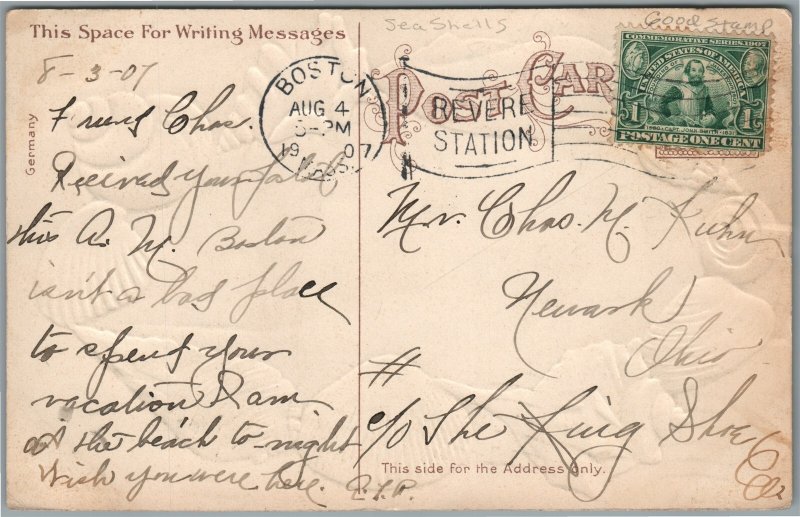 Sea Shells
Good Stamp
This Space For Writing Messages
Germany
8-3-07
Friend Chas.
Received your postal
this A. M. Boston
isn't a bad place
to spend your
vacation I am
at the beach to-night
Wish you were here.
BOSTON
AUG 4
-PM
1907
MASS.
REVERE
STATION
POST CARD
COMMEMORATIVE SERIES, 1907
UNITED STATES OF AMERICA
1 1
1580, CAPT. JOHN SMITH, 1631
POSTAGE ONE CENT
Mr. Chas. M. Kuhn
Newark
Ohio
#
c/o The King Shoe Co
This side for the Address Only.